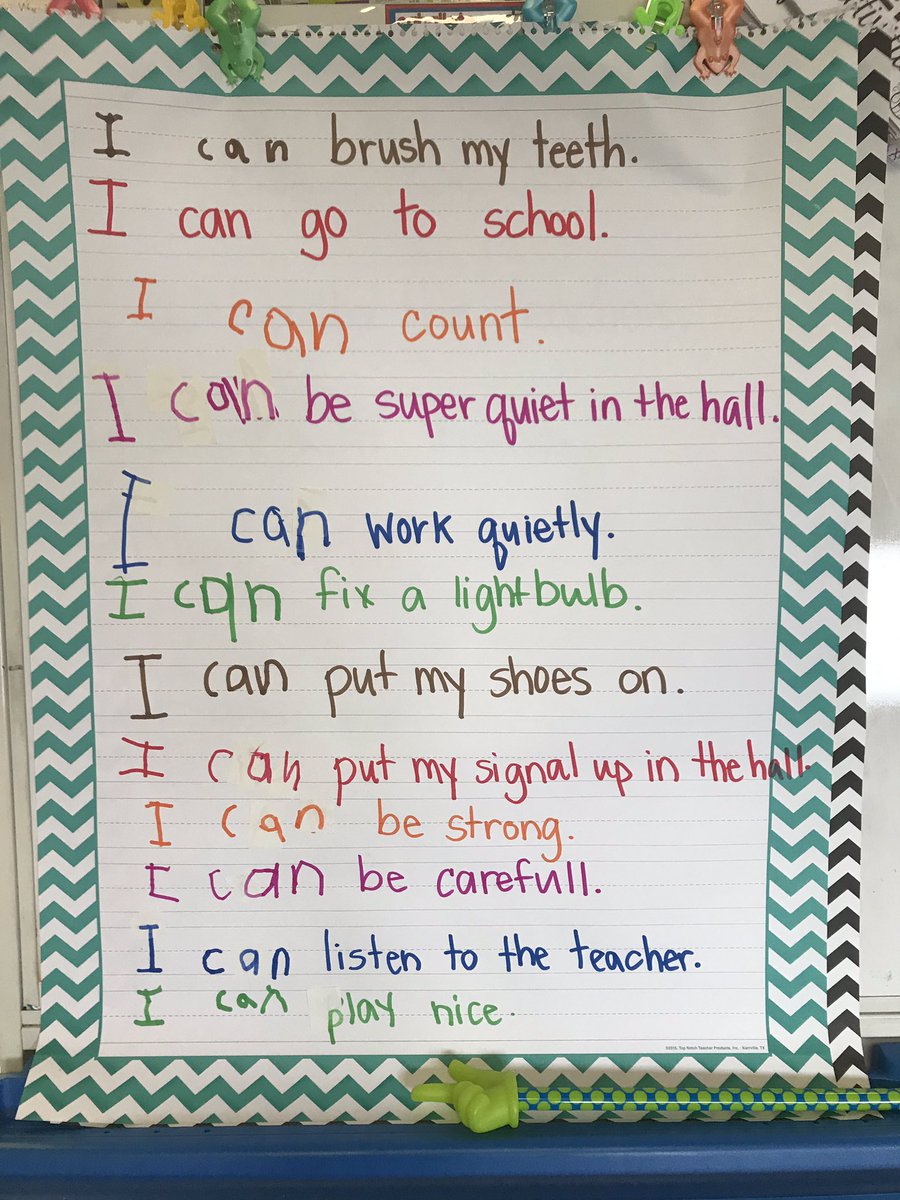 I can brush my teeth.
I can go to school.
I can count.
I can be super quiet in the hall.
I can work quietly.
I can fix a lightbulb.
I can put my shoes on.
I can put my signal up in the hall.
I can be strong.
I can be carefull.
I can listen to the teacher.
I can play nice.
©2015, Top Notch Teacher Products, Inc. · Kerrville, TX